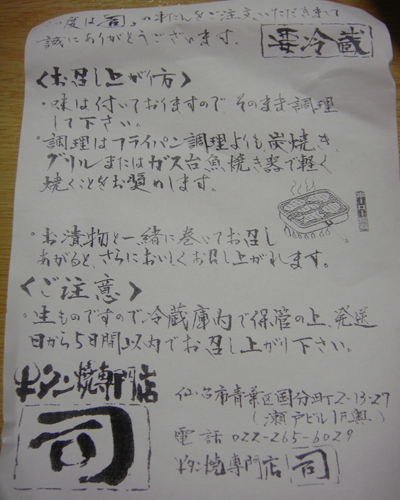 度は司の牛たんをご注文いただきまして
誠にありがとうございます。
要冷蔵
〈お召し上がり方〉
・味は付いておりますので そのまま調理
して下さい。
・調理はフライパン調理よりも炭焼き、
グリルまたはガス台魚焼き器で軽く
焼くことをお奨めします。
・お漬物と一緒に巻いてお召し
あがると、さらにおいしくお召し上がれます。
〈ご注意〉
・生ものですので、冷蔵庫内で保管の上、発送
日から5日間以内でお召し上がり下さい。
牛タン焼専門店
司
仙台市青葉区国分町2-13-27
(瀬戸ビル1F奥)
電話 022-265-6029
牛タン焼専門店 司